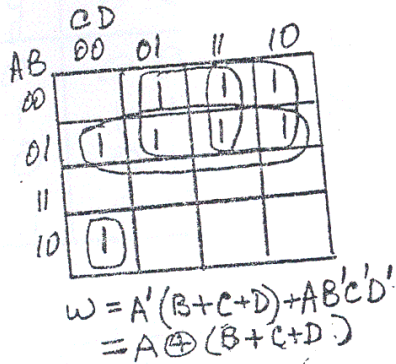 CD
AB 00 01 11 10
00 1 1 1
01 1 1 1 1
11
10 1
W = A'(B+C+D)+AB'C'D'
= A⊕(B+C+D)